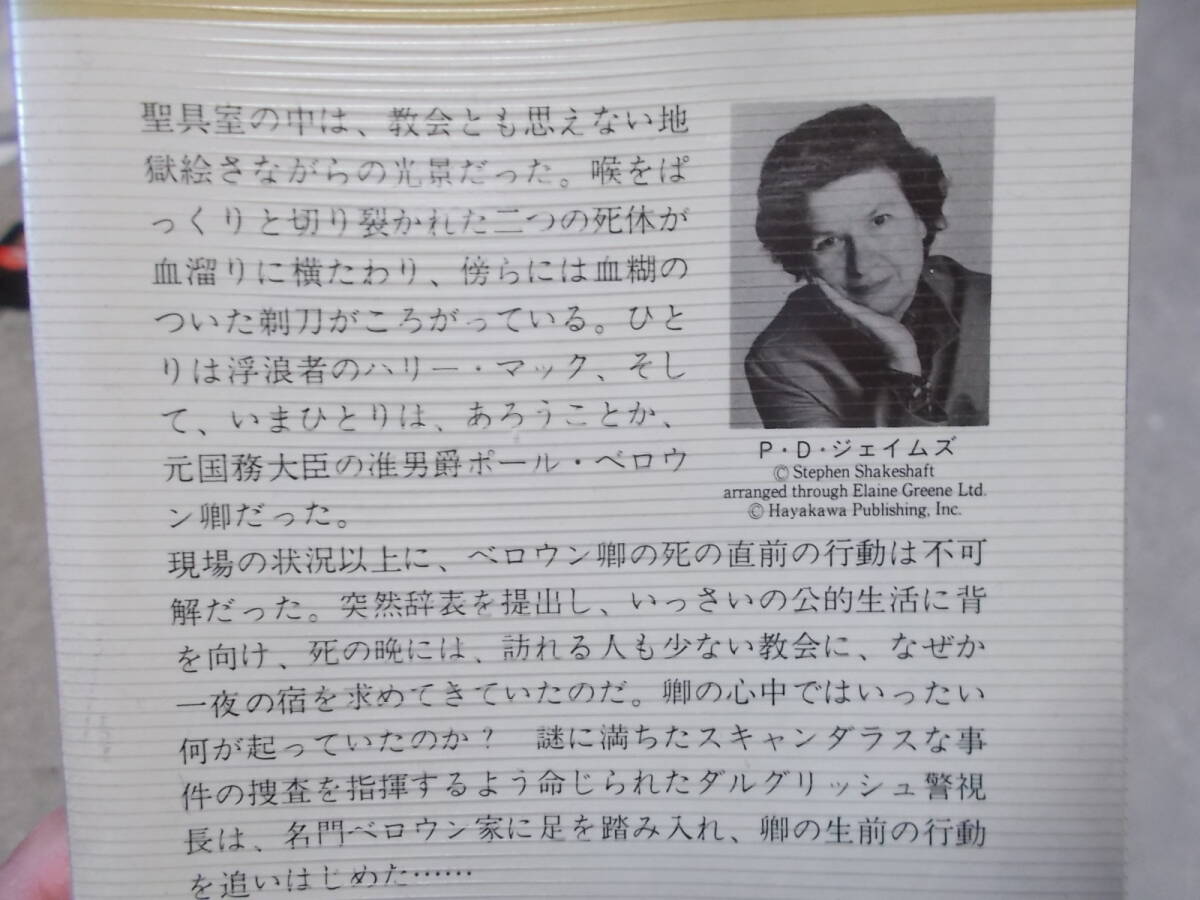 聖具室の中は、教会とも思えない地
獄絵さながらの光景だった。喉をぱ
っくりと切り裂かれた二つの死体が
血溜りに横たわり、傍らには血糊の
ついた剃刀がころがっている。ひと
りは浮浪者のハリー・マック、そし
て、いまひとりは、あろうことか、
元国務大臣の准男爵ポール・ベロウ
ン卿だった。
現場の状況以上に、ベロウン卿の死の直前の行動は不可
解だった。突然辞表を提出し、いっさいの公的生活に背
を向け、死の晩には、訪れる人も少ない教会に、なぜか
一夜の宿を求めてきていたのだ。卿の心中ではいったい
何が起っていたのか？　謎に満ちたスキャンダラスな事
件の捜査を指揮するよう命じられたダルグリッシュ警視
長は、名門ベロウン家に足を踏み入れ、卿の生前の行動
を追いはじめた……
P・D・ジェイムズ
© Stephen Shakeshaft
arranged through Elaine Greene Ltd.
© Hayakawa Publishing, Inc.